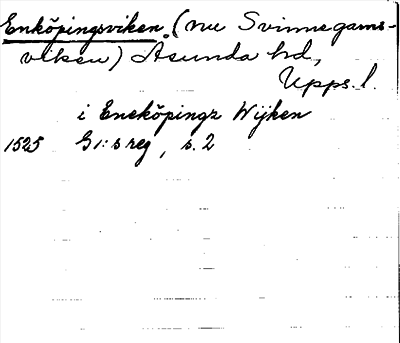 Enköpingsviken. (nu Svinnegarns-
viken) Asunda hd,
Upps. l.
i Eneköpingz Wijken
1525 G1:s reg, s. 2